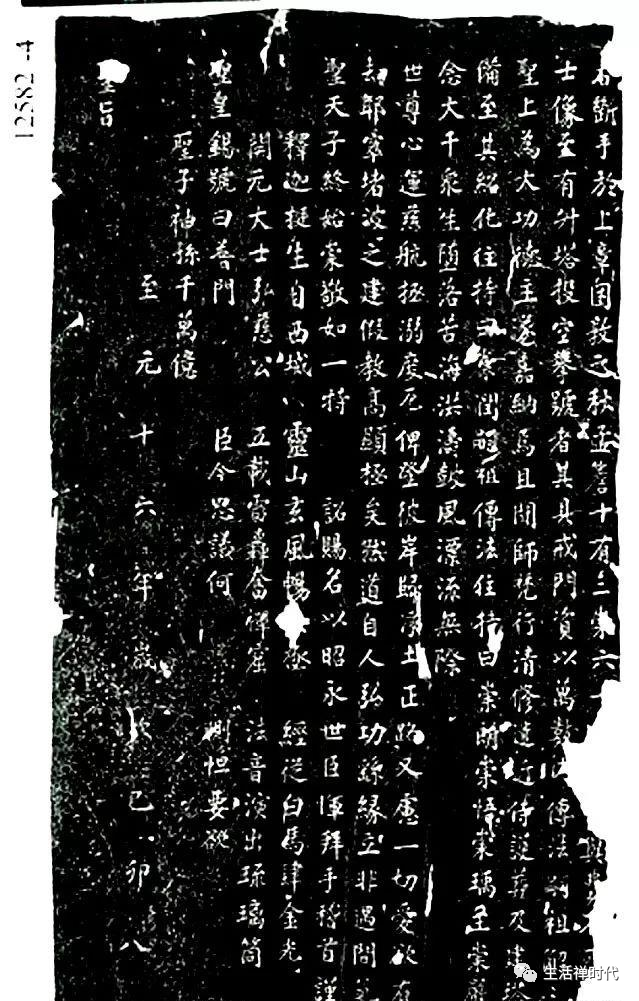 斷手於上章困敦孟秋孟蓂十有三葉六
士像至有升塔投空拳號者其具戒門資以萬數傳法嗣祖
聖上為大功德主遂嘉納焉且聞師梵行清修遠近侍護葬及建
備至其紹化住持曰崇閏嗣祖傳法住持曰崇朗崇悟崇瑀至崇
念大千衆生墮落苦海洪濤鼓風漂流無際
世尊心運慈航拯溺度厄俾登彼岸歸淨土正路又慮一切愛欲
却耶窣堵波之建假教高顯極矣然道自人弘功緣立非遇
聖天子終始崇敬如一特
詔賜名以昭永世臣渾拜手稽首
釋迦挺生自西域
靈山玄風暢極
經從白馬肆金光
開元大士弘慈公
五載雷轟奮
窟
法音演出琉璃筒
聖皇錫號曰普門
臣今思議何
惻怛要欲
聖子神孫千萬億
至元十六年歲次己卯八
聖旨
12582-4
生活禅时代